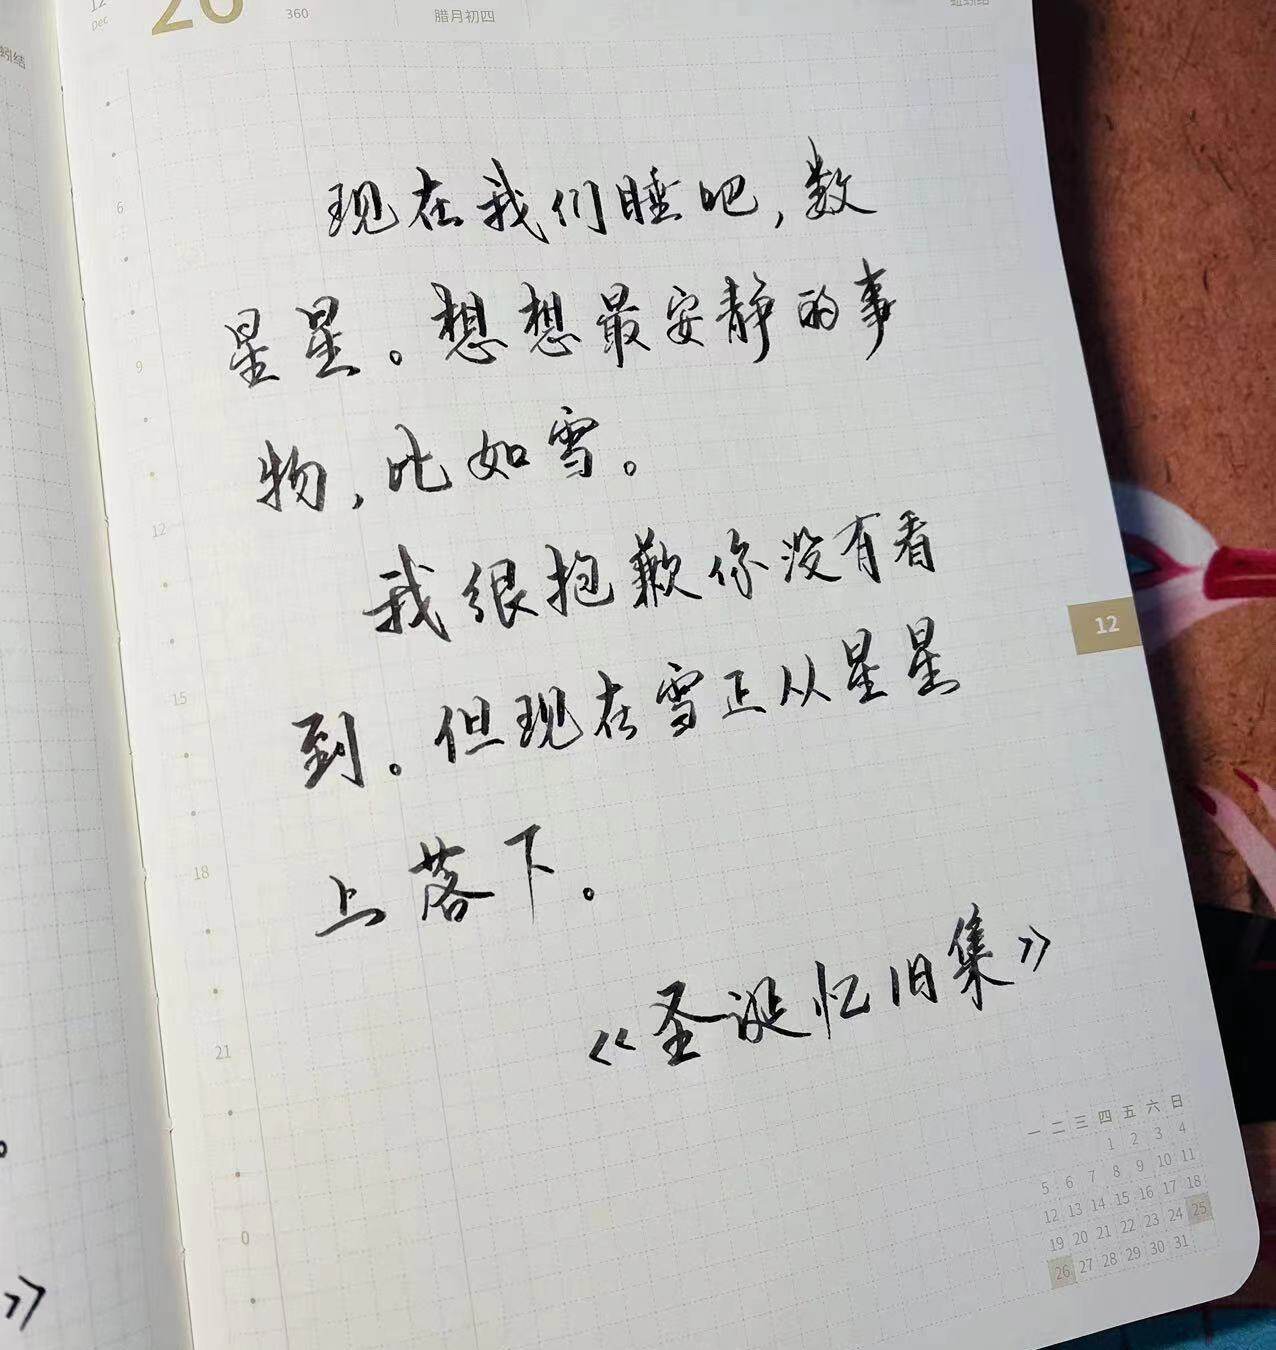 12
Dec
26
360
腊月初四
蚓结
6
9
12
15
18
21
0
现在我们睡吧，数
星星。想想最安静的事
物，比如雪。
我很抱歉你没有看
到。但现在雪正从星星
上落下。
《圣诞忆旧集》
12
一 二 三 四 五 六 日
1 2 3 4
5 6 7 8 9 10 11
12 13 14 15 16 17 18
19 20 21 22 23 24 25
26 27 28 29 30 31
。
》